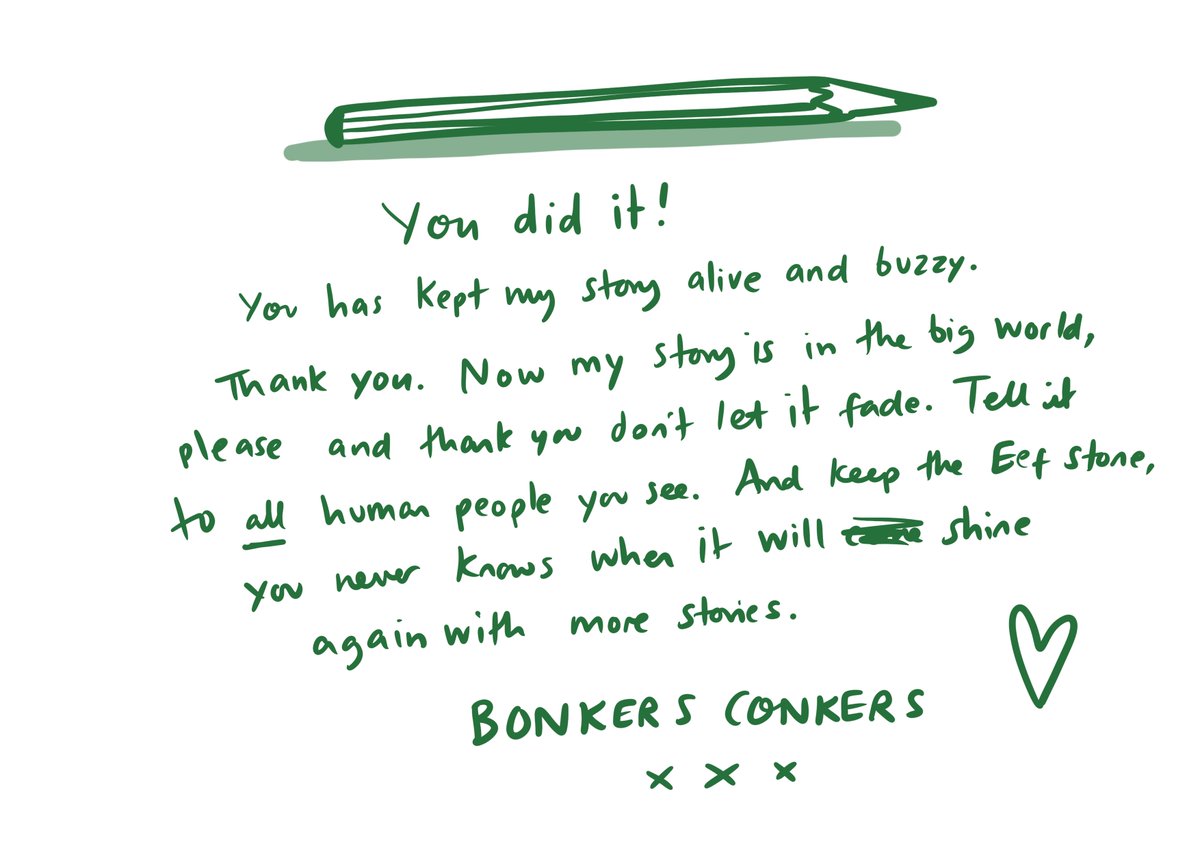 You did it!
You has kept my story alive and buzzy.
Thank you. Now my story is in the big world,
please and thank you don't let it fade. Tell it
to all human people you see. And keep the Eef stone,
you never knows when it will shine
again with more stories.
BONKERS CONKERS
x x x